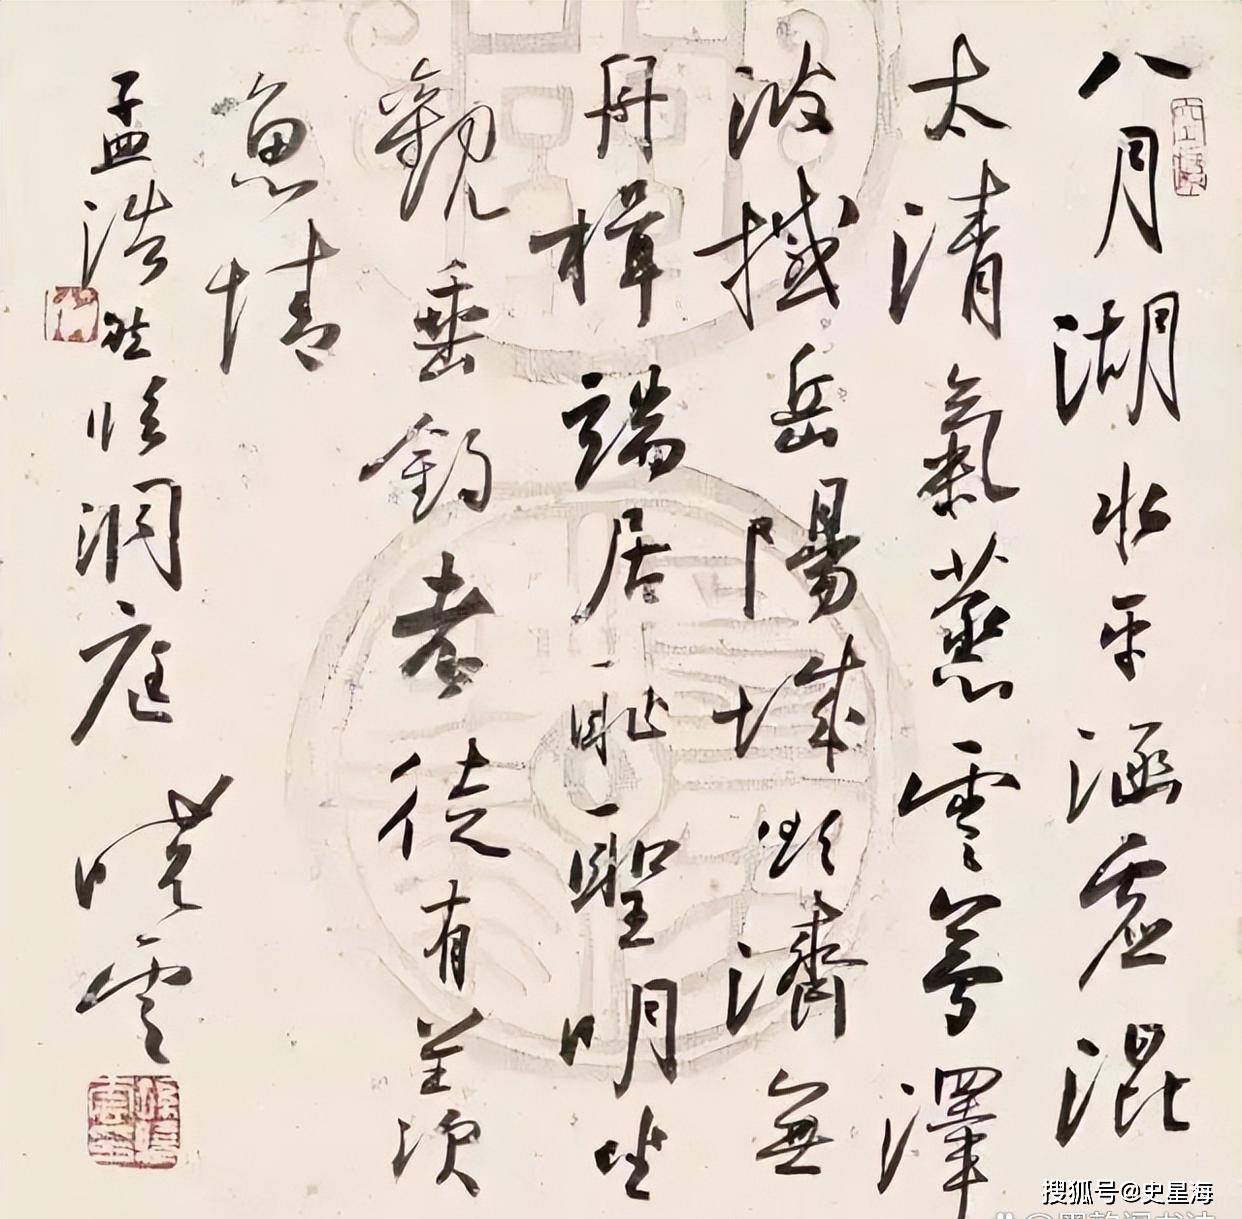 八月湖水平涵虚混
太清氣蒸雲夢澤
波撼岳陽城欲濟無
舟楫端居恥聖明坐
觀垂釣者徒有羨
魚情
孟浩然临洞庭 曉雲
搜狐号@史星海